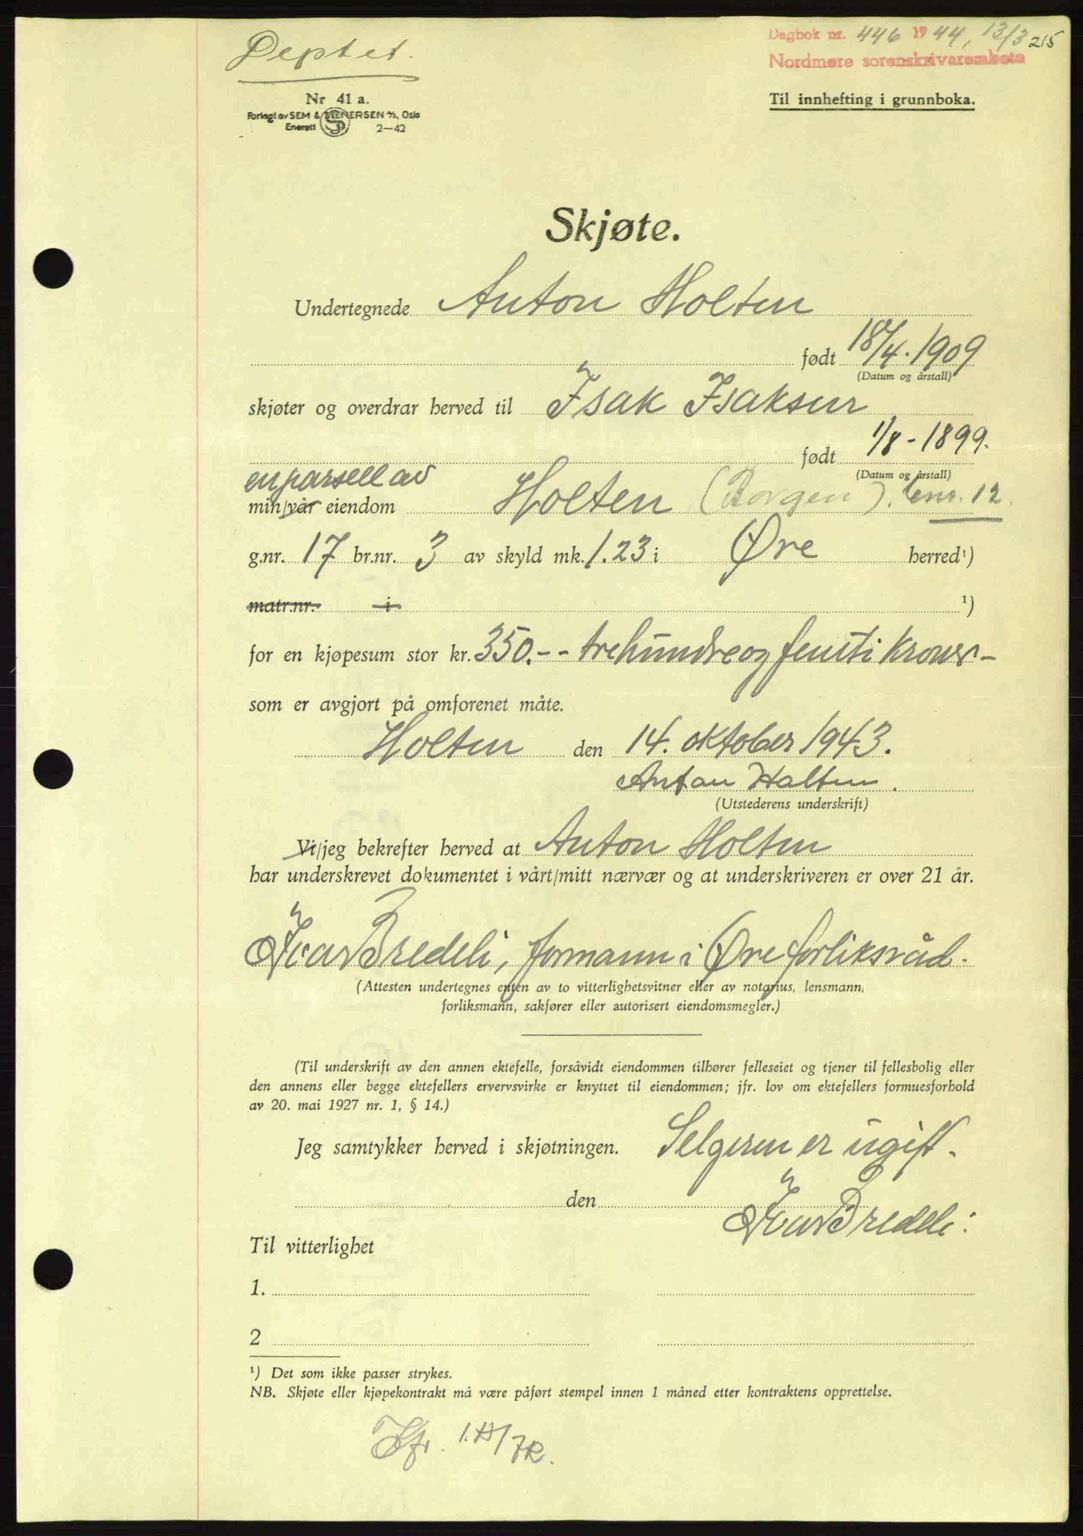 Deptet.
Dagbok nr. 446 1944, 13/3 215
Nordmøre sorenskrivarembete
Nr 41 a.
Forlagt av SEM & STENERSEN A/S, Oslo
Enerett 2—42
Til innhefting i grunnboka.
Skjøte.
Undertegnede Anton Holten
født 18/4. 1909
(Datum og årstall)
skjøter og overdrar herved til Isak Isaksen
født 1/8 - 1899.
(Datum og årstall)
en parsell av
min/vår eiendom Holten (Borgen). lnr. 12
g.nr. 17 br.nr. 3 av skyld mk. 1.23 i Øre herred¹)
matr.nr. i ¹)
for en kjøpesum stor kr. 350.-- trehundreogfemti kroner-
som er avgjort på omforenet måte.
Holten den 14. oktober 1943.
Anton Holten.
(Utstederens underskrift)
Vi/jeg bekrefter herved at Anton Holten
har underskrevet dokumentet i vårt/mitt nærvær og at underskriveren er over 21 år.
Ivar Bredeli, formann i Øre forliksråd.
(Attesten undertegnes enten av to vitterlighetsvitner eller av notarius, lensmann,
forliksmann, sakfører eller autorisert eiendomsmegler.)
(Til underskrift av den annen ektefelle, forsåvidt eiendommen tilhører felleseiet og tjener til fellesbolig eller
den annens eller begge ektefellers ervervsvirke er knyttet til eiendommen; jfr. lov om ektefellers formuesforhold
av 20. mai 1927 nr. 1, § 14.)
Jeg samtykker herved i skjøtningen. Selgeren er ugift.
den
Ivar Bredeli.
Til vitterlighet
1.
2
¹) Det som ikke passer strykes.
NB. Skjøte eller kjøpekontrakt må være påført stempel innen 1 måned etter kontraktens opprettelse.